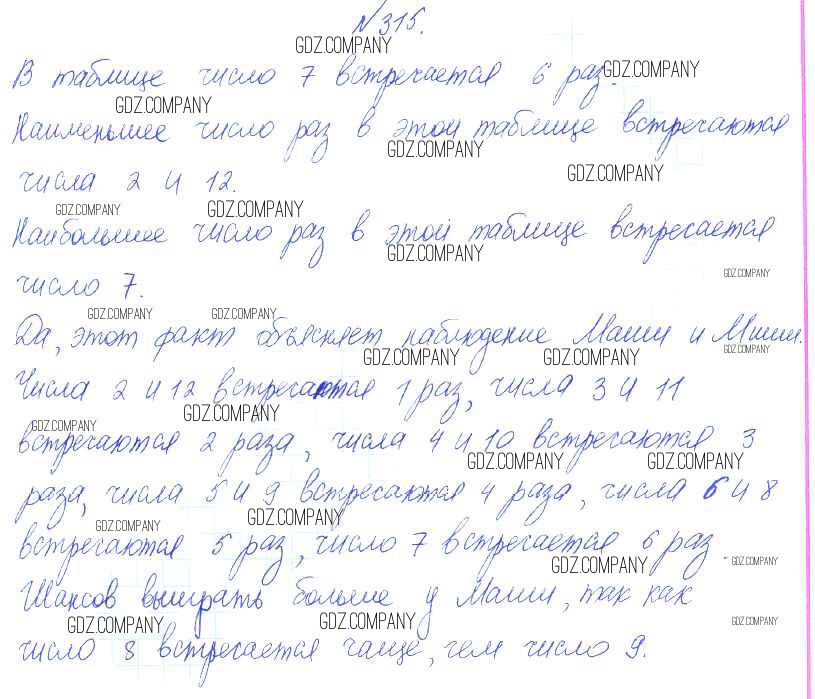 №315.
GDZ.COMPANY
В таблице число 7 встречается 6 раз.
GDZ.COMPANY
GDZ.COMPANY
Наименьшее число раз в этой таблице встречаются
GDZ.COMPANY
GDZ.COMPANY
числа 2 и 12.
GDZ.COMPANY GDZ.COMPANY
Наибольшее число раз в этой таблице встречается
GDZ.COMPANY
GDZ.COMPANY
число 7.
GDZ.COMPANY GDZ.COMPANY
Да, этот факт объясняет наблюдение Маши и Миши.
GDZ.COMPANY GDZ.COMPANY GDZ.COMPANY
Числа 2 и 12 встречаются 1 раз, числа 3 и 11
GDZ.COMPANY
GDZ.COMPANY
встречаются 2 раза, числа 4 и 10 встречаются 3
GDZ.COMPANY GDZ.COMPANY
раза, числа 5 и 9 встречаются 4 раза, числа 6 и 8
GDZ.COMPANY GDZ.COMPANY
встречаются 5 раз, число 7 встречается 6 раз.
GDZ.COMPANY GDZ.COMPANY
Шансов выиграть больше у Маши, так как
GDZ.COMPANY GDZ.COMPANY GDZ.COMPANY
число 8 встречается чаще, чем число 9.